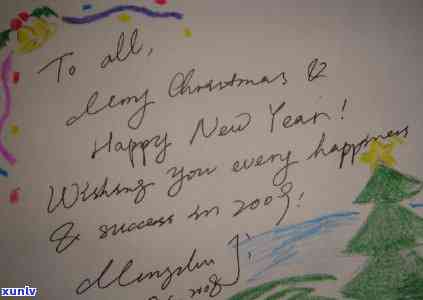 To all,
Merry Christmas &
Happy New Year!
Wishing you every happiness
& success in 2009!
xunlv